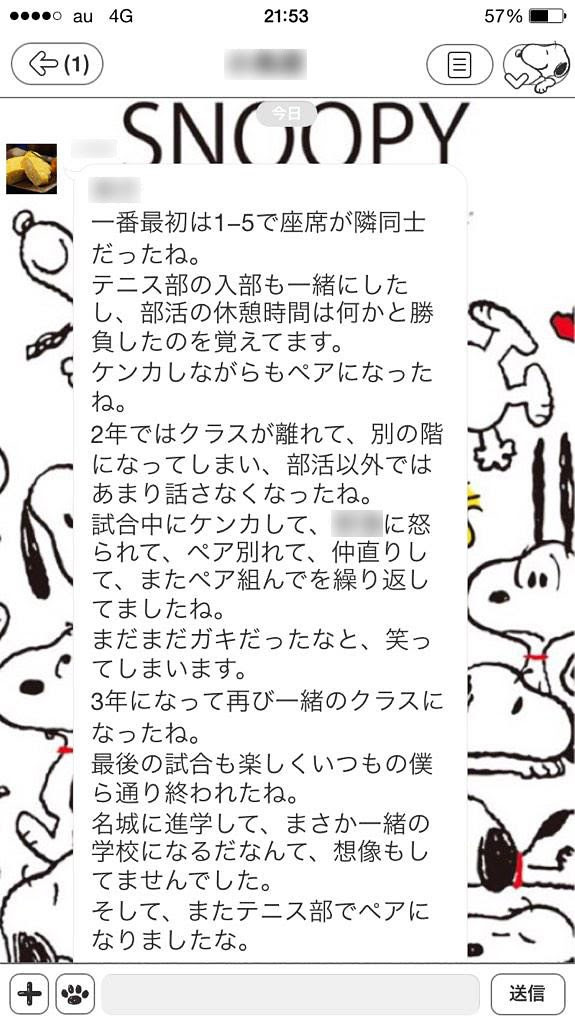 au 4G 21:53 57%
(1)
SNOOPY
今日
一番最初は1−5で座席が隣同士
だったね。
テニス部の入部も一緒にした
し、部活の休憩時間は何かと勝
負したのを覚えてます。
ケンカしながらもペアになった
ね。
2年ではクラスが離れて、別の階
になってしまい、部活以外では
あまり話さなくなったね。
試合中にケンカして、に怒
られて、ペア別れて、仲直りし
て、またペア組んでを繰り返し
てましたね。
まだまだガキだったなと、笑っ
てしまいます。
3年になって再び一緒のクラスに
なったね。
最後の試合も楽しくいつもの僕
ら通り終われたね。
名城に進学して、まさか一緒の
学校になるだなんて、想像もし
てませんでした。
そして、またテニス部でペアに
なりましたな。
送信